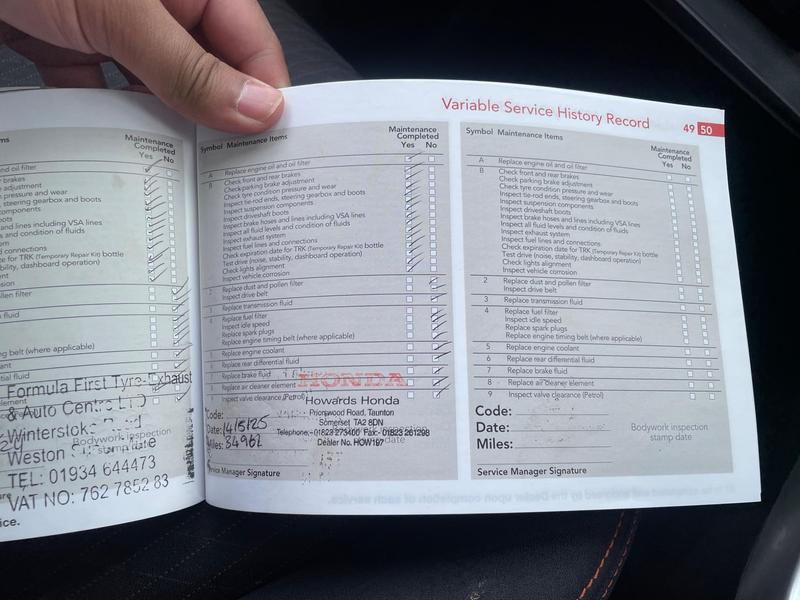 Variable Service History Record 49 50
ms
Maintenance
Completed
Yes No
nd oil filter
r brakes
e adjustment
n pressure and wear
, steering gearbox and boots
omponents
oots
and lines including VSA lines
s and condition of fluids
em
d connections
te for TRK (Temporary Repair Kit) bottle
noise, vibration
stability, dashboard operation)
ent
osion
ollen filter
n fluid
ng belt (where applicable)
ant
tial fluid
element
Formula First Tyre Exhaust
& Auto Centre LTD
Winterstoke Road
Weston
Bodywork inspection
stamp date
TEL: 01934 644473
VAT NO: 762 7852 83
ice.
Symbol Maintenance Items
Maintenance
Completed
Yes No
A Replace engine oil and oil filter
B Check front and rear brakes
Check parking brake adjustment
Check tyre condition pressure and wear
Inspect tie-rod ends, steering gearbox and boots
Inspect suspension components
Inspect driveshaft boots
Inspect brake hoses and lines including VSA lines
Inspect all fluid levels and condition of fluids
Inspect exhaust system
Inspect fuel lines and connections
Check expiration date for TRK (Temporary Repair Kit) bottle
Test drive (noise, stability, dashboard operation)
Check lights alignment
Inspect vehicle corrosion
2 Replace dust and pollen filter
Inspect drive belt
3 Replace transmission fluid
4 Replace fuel filter
Inspect idle speed
Replace spark plugs
Replace engine timing belt (where applicable)
5 Replace engine coolant
6 Replace rear differential fluid
7 Replace brake fluid
8 Replace air cleaner element
9 Inspect valve clearance (Petrol)
HONDA
Howards Honda
Priorswood Road, Taunton
Somerset TA2 8DN
Telephone: 01823 273400 Fax: 01823 261298
Dealer No. HOW197
Code:
Date: 14/5/25
Miles: 34962
Service Manager Signature
Symbol Maintenance Items
Maintenance
Completed
Yes No
A Replace engine oil and oil filter
B Check front and rear brakes
Check parking brake adjustment
Check tyre condition pressure and wear
Inspect tie-rod ends, steering gearbox and boots
Inspect suspension components
Inspect driveshaft boots
Inspect brake hoses and lines including VSA lines
Inspect all fluid levels and condition of fluids
Inspect exhaust system
Inspect fuel lines and connections
Check expiration date for TRK (Temporary Repair Kit) bottle
Test drive (noise, stability, dashboard operation)
Check lights alignment
Inspect vehicle corrosion
2 Replace dust and pollen filter
Inspect drive belt
3 Replace transmission fluid
4 Replace fuel filter
Inspect idle speed
Replace spark plugs
Replace engine timing belt (where applicable)
5 Replace engine coolant
6 Replace rear differential fluid
7 Replace brake fluid
8 Replace air cleaner element
9 Inspect valve clearance (Petrol)
Code:
Date:
Miles:
Bodywork inspection
stamp date
Service Manager Signature